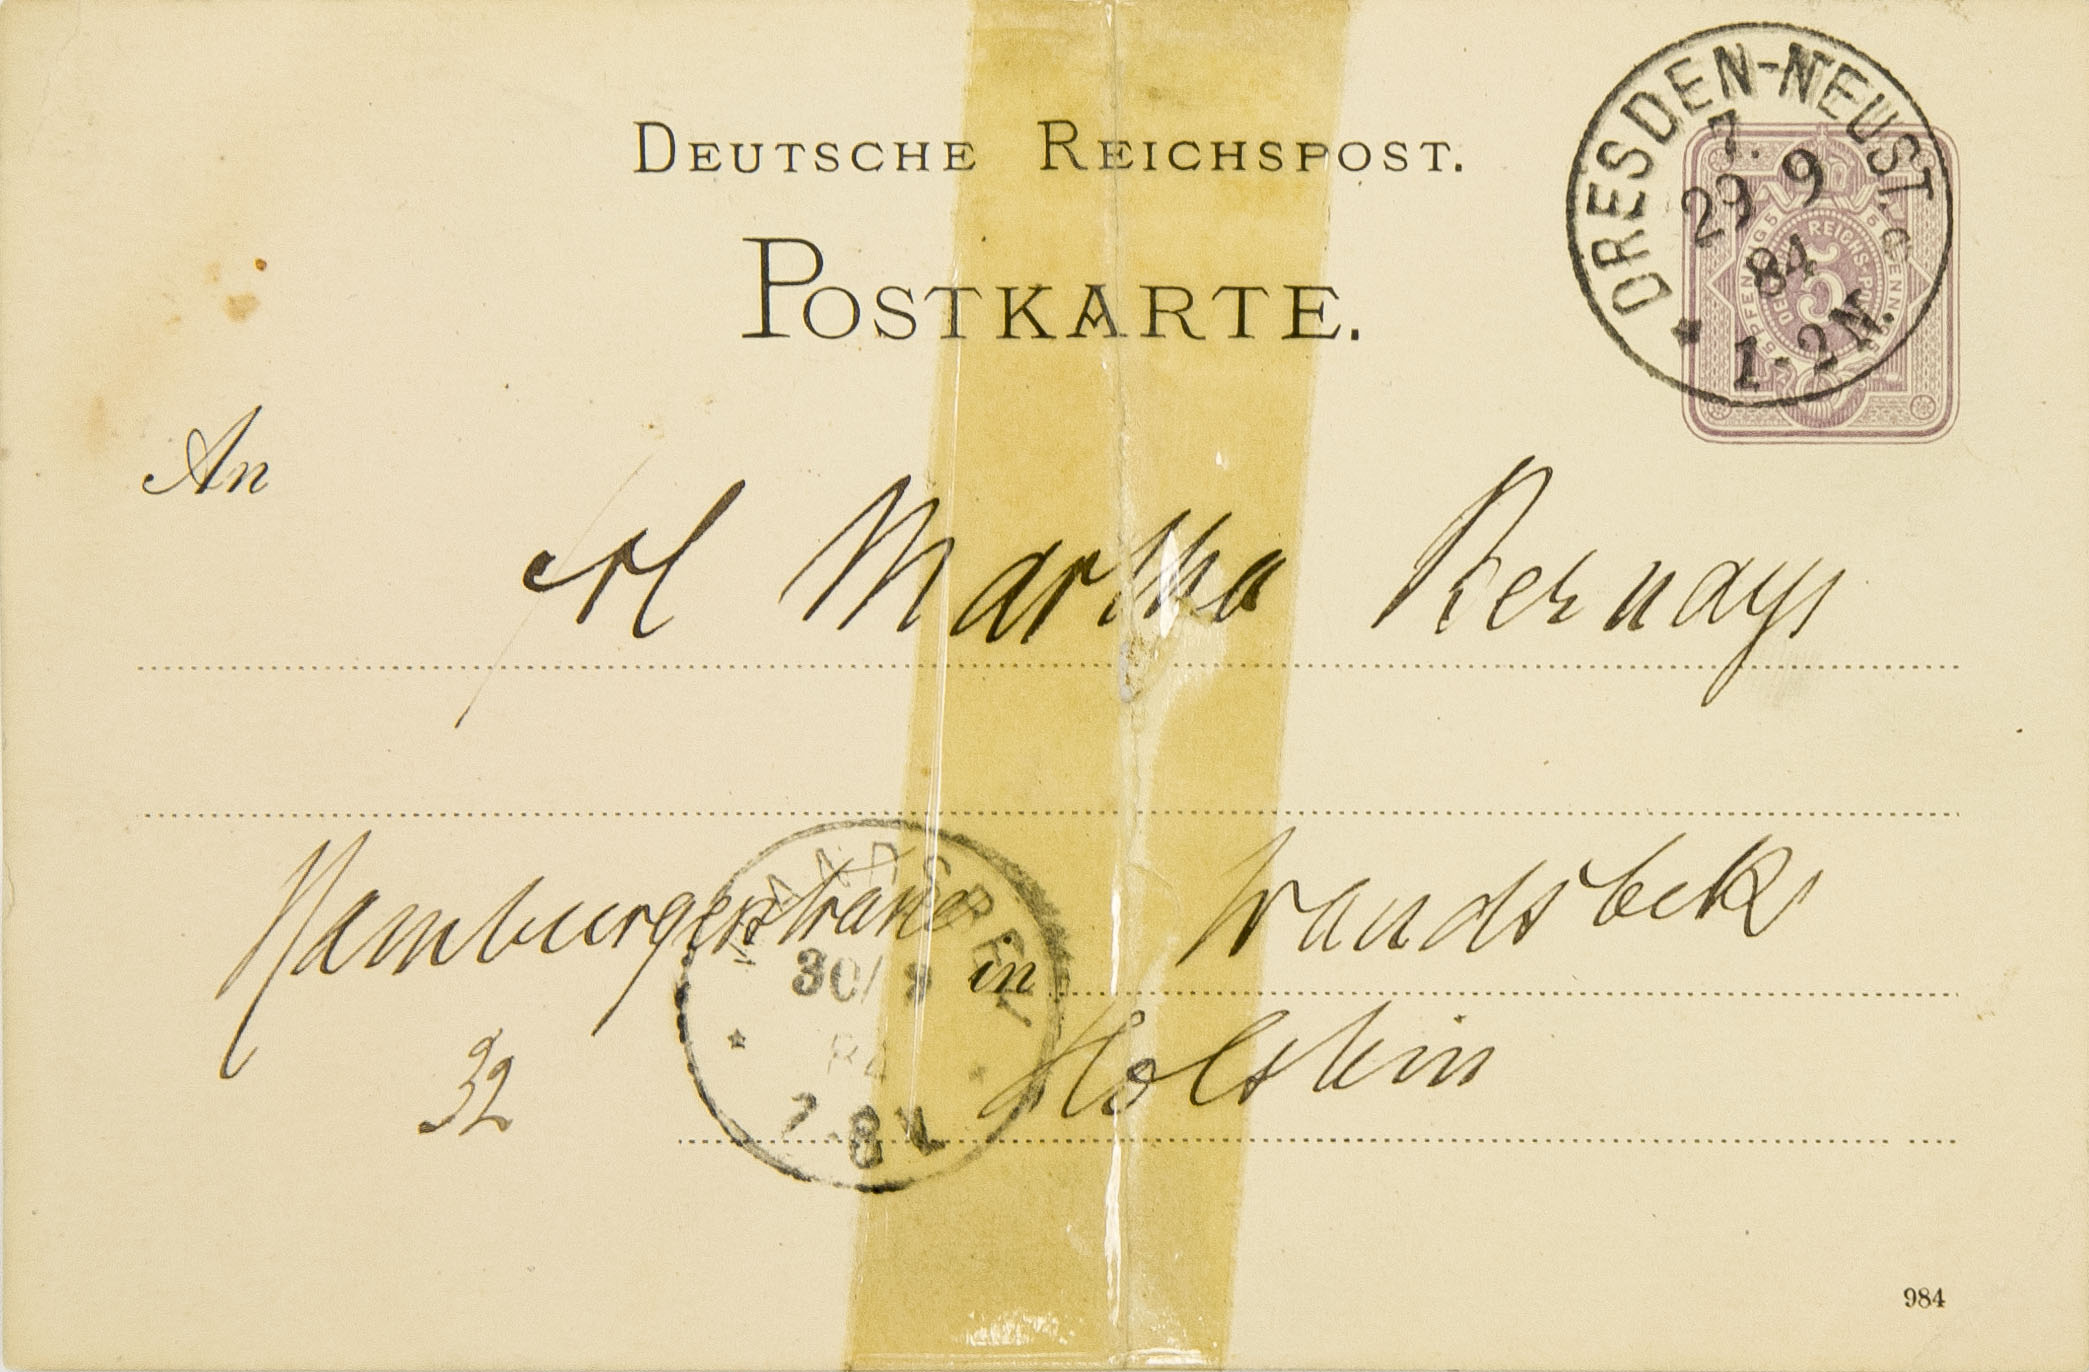 DEUTSCHE REICHSPOST.
POSTKARTE.
DRESDEN-NEUST.
7.
29 9
84
1-2N.
DEUTSCHE REICHS-POST
5
An
Frl Martha Bernays
Hamburgerstrasse in Wandsbek
32 Holstein
WANDSBEK
30/9
84
7-8V.
984